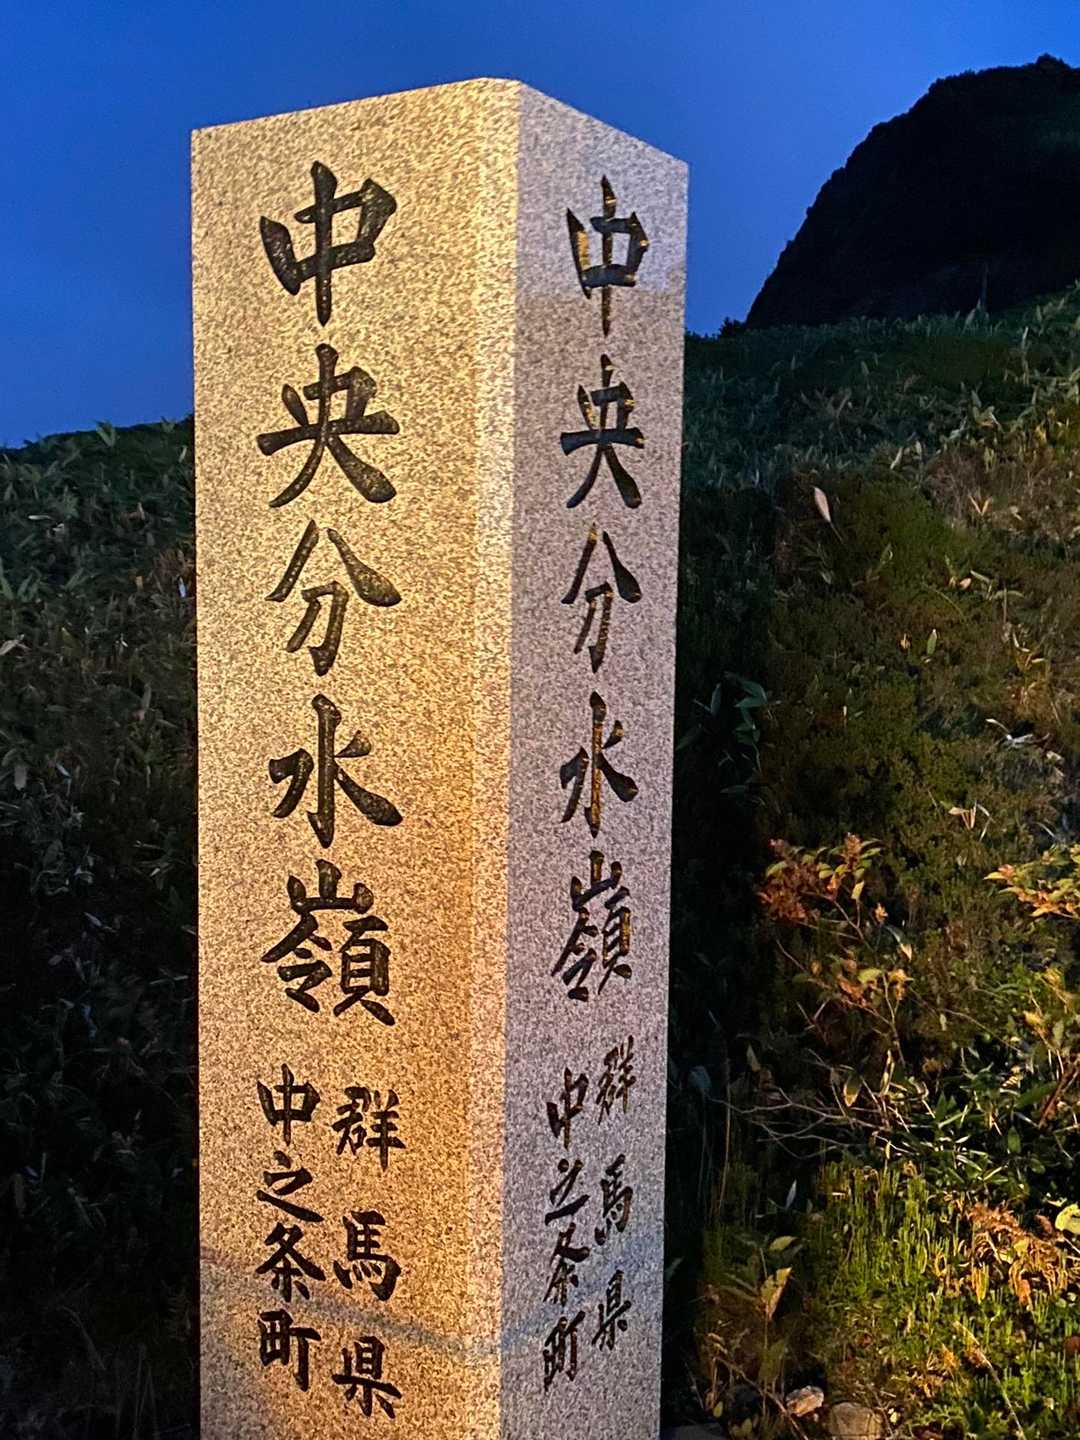 中央分水嶺
群馬県
中之条町
中央分水嶺
群馬県
中之条町